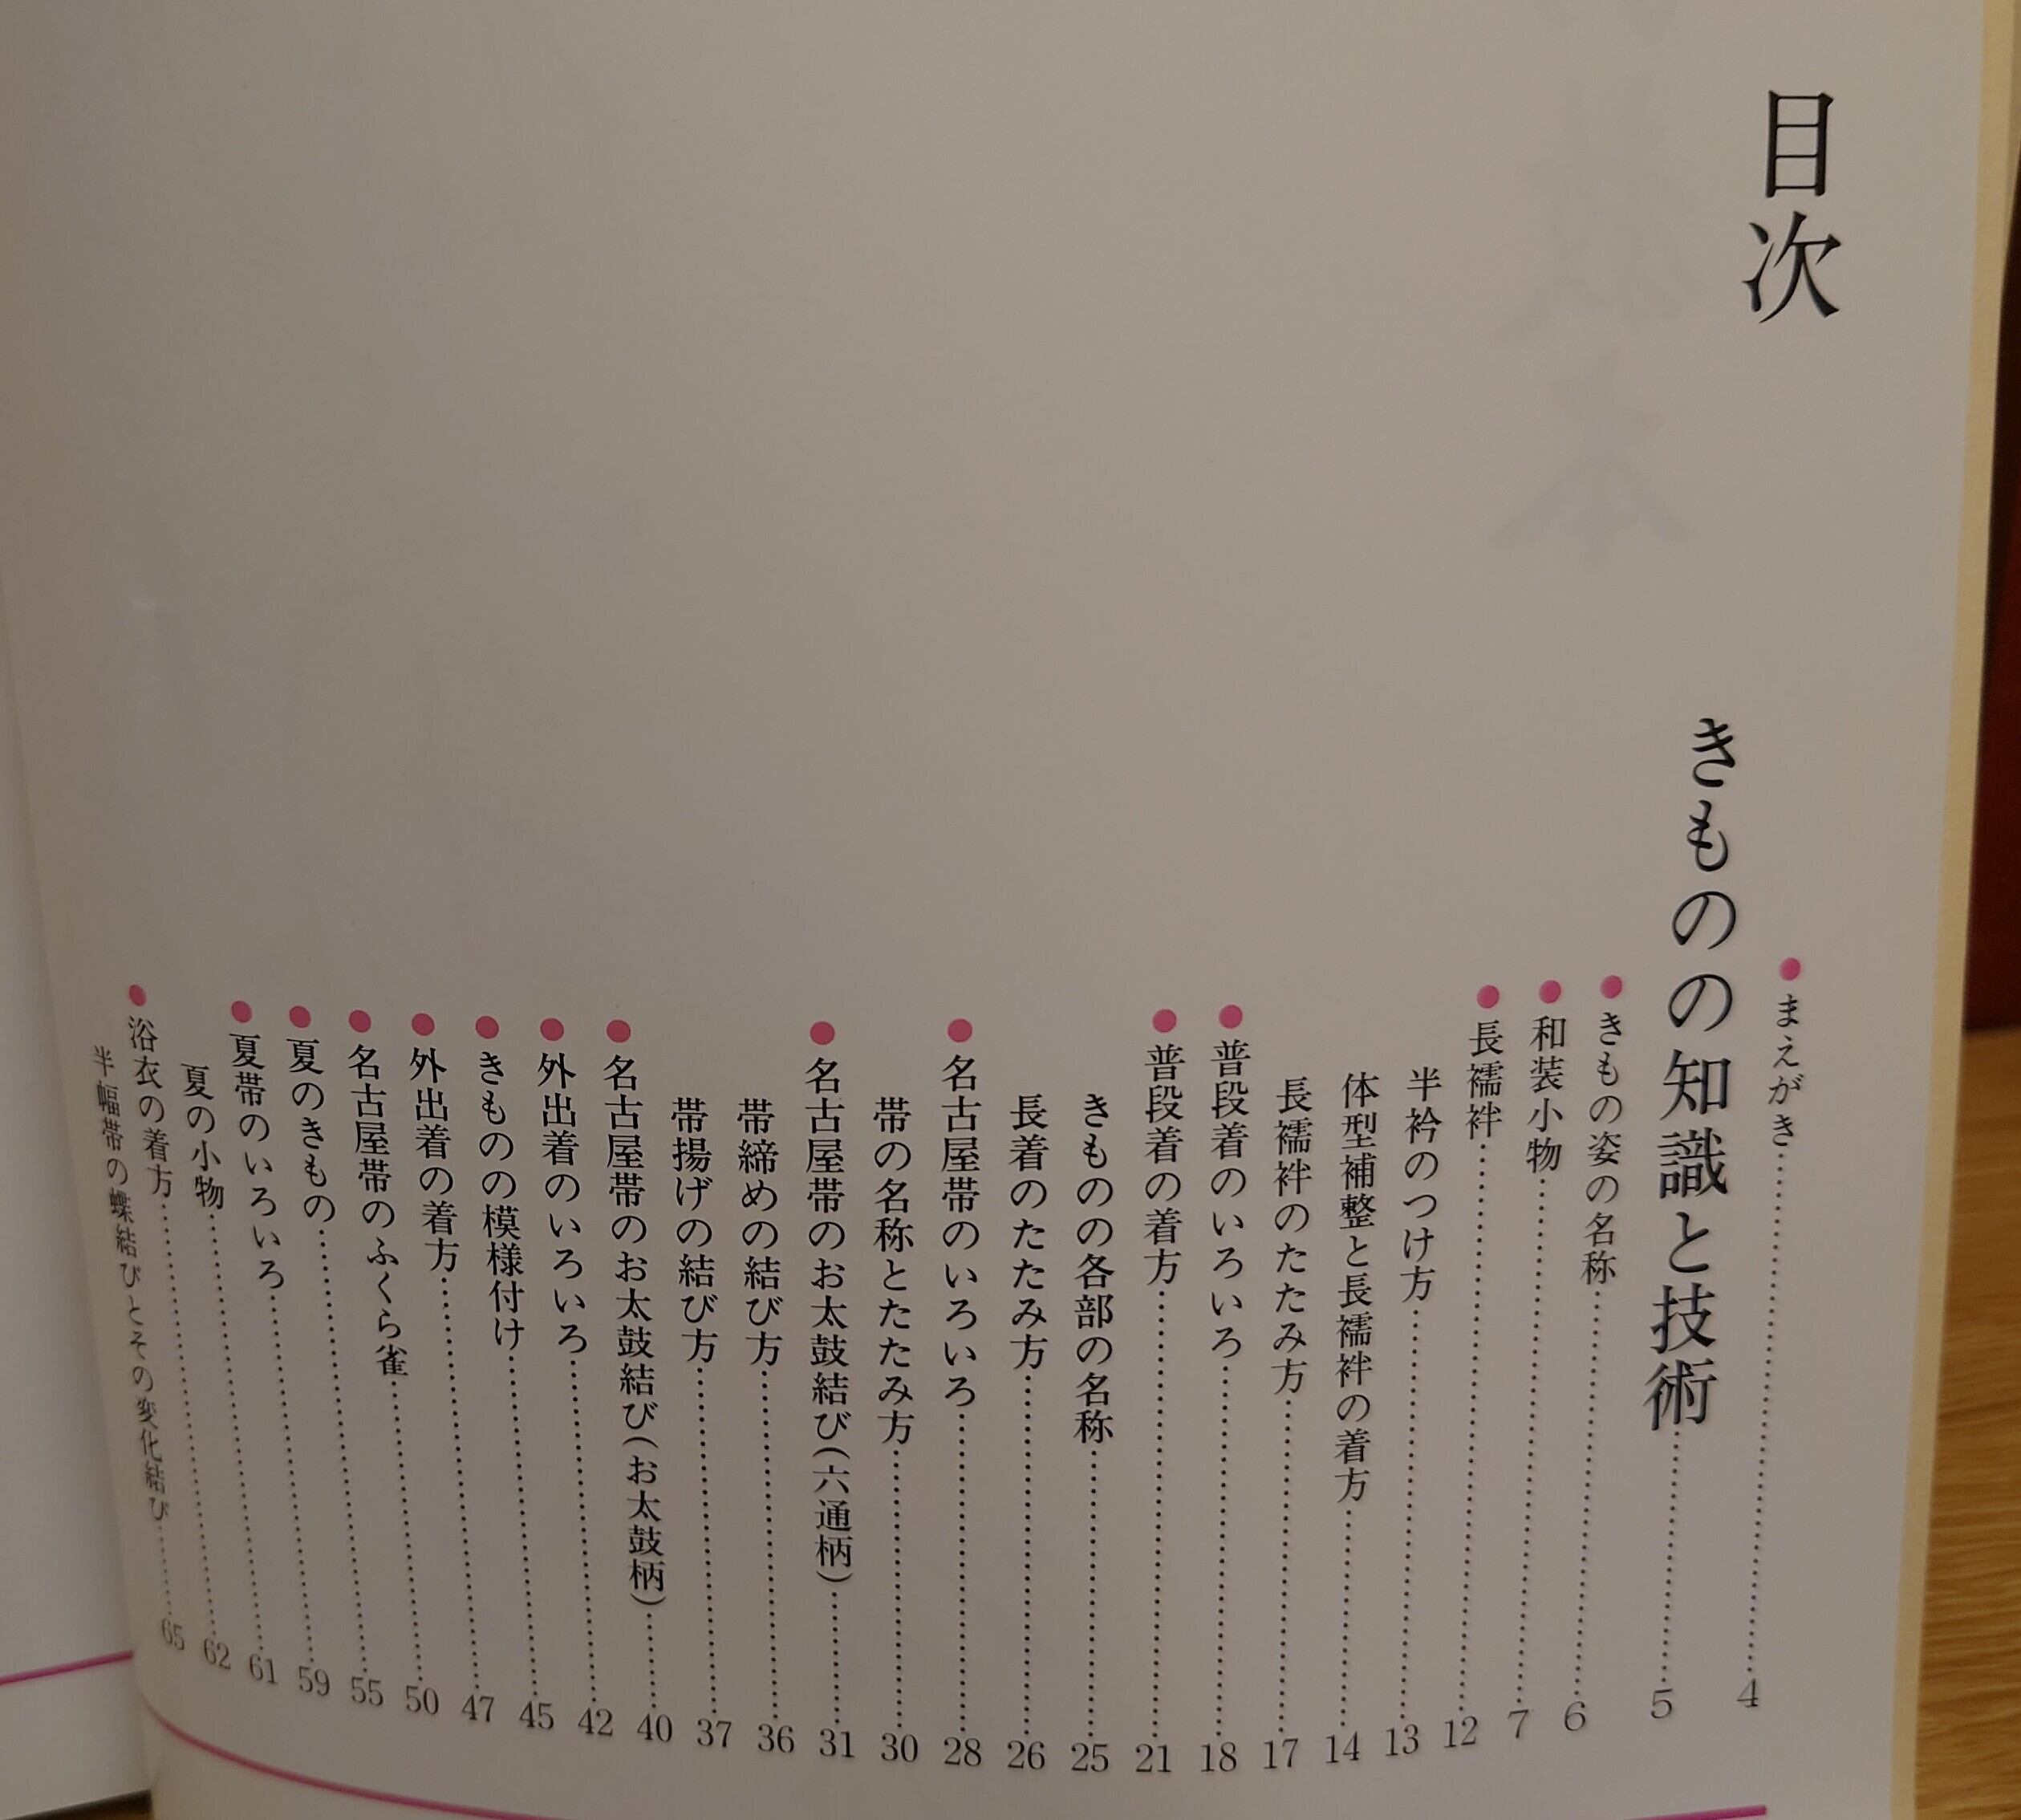 目次
●まえがき……4
きものの知識と技術……5
●きものの姿の名称……6
●和装小物……7
●長襦袢……12
半衿のつけ方……13
体型補整と長襦袢の着方……14
長襦袢のたたみ方……17
●普段着のいろいろ……18
●普段着の着方……21
きものの各部の名称……25
長着のたたみ方……26
●名古屋帯のいろいろ……28
帯の名称とたたみ方……30
●名古屋帯のお太鼓結び(六通柄)……31
帯締めの結び方……36
帯揚げの結び方……37
●名古屋帯のお太鼓結び(お太鼓柄)……40
●外出着のいろいろ……42
●きものの模様付け……45
●外出着の着方……47
●名古屋帯のふくら雀……50
●夏のきもの……55
●夏帯のいろいろ……59
夏の小物……61
●浴衣の着方……62
半幅帯の蝶結びとその変化結び……65